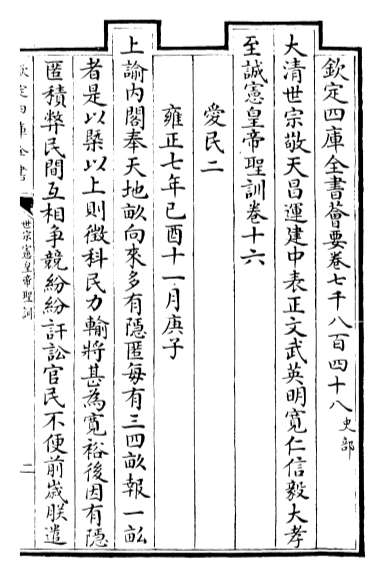 欽定四庫全書薈要卷七千八百四十八 史部
大清世宗敬天昌運建中表正文武英明寬仁信毅大孝
至誠憲皇帝聖訓卷十六
愛民二
雍正七年己酉十一月庚子
上諭内閣奉天地畝向來多有隱匿每有三四畝報一畝
者是以槩以上則徵科民力輸將甚為寛裕後因有隱
匿積弊民間互相争競紛紛訐訟官民不便前歲朕遣
欽定四庫全書
世宗憲皇帝聖訓
二